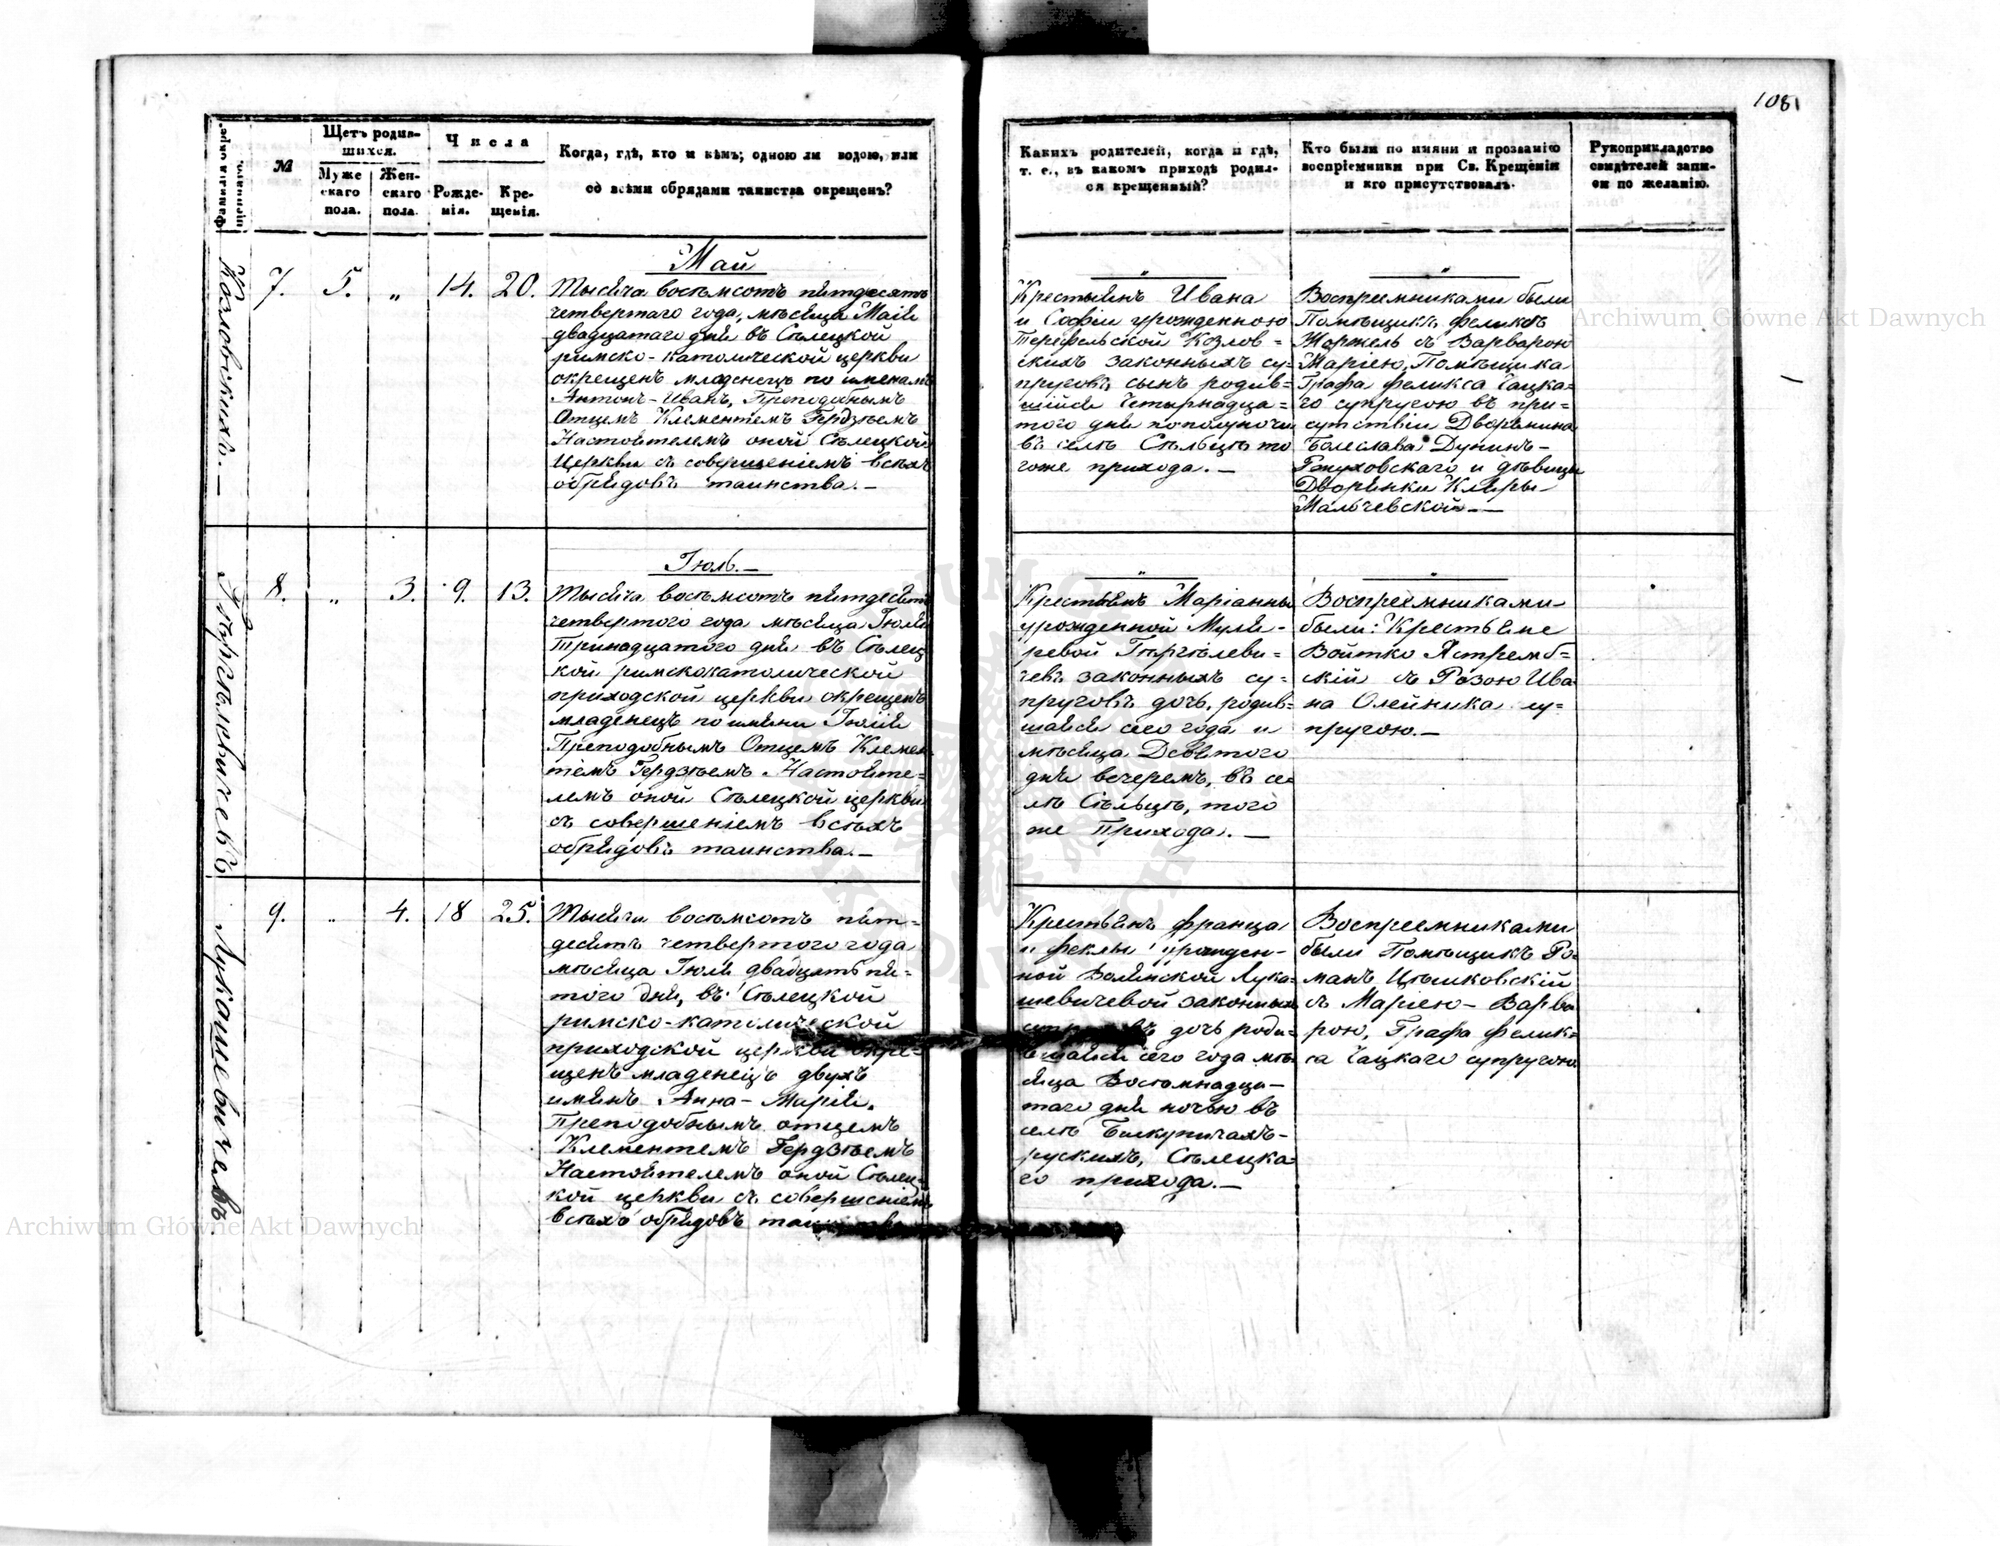 1081
Фамилія окре-
щеннаго.
№
Щетъ родив-
шихся.
Муже
скаго
пола.
Жен-
скаго
пола.
Числа
Рожде-
нія.
Кре-
щенія.
Когда, гдѣ, кто и кѣмъ; одною ли водою, или
со всѣми обрядами таинства окрещенъ?
Козловскихъ.—
7.
5.
"
14.
20.
Май
Тысяча восемсотъ пятдесятъ
четвертаго года, мѣсяца Мая
двадцатаго дня въ Сѣлецкой
римско-католической церкви
окрещенъ младенецъ по именамъ
Антонъ-Иванъ, Преподобнымъ
Отцемъ Клементемъ Гердзѣемъ
Настоятелемъ оной Сѣлецкой
Церкви съ совершеніемъ всѣхъ
обрядовъ таинства.—
8.
"
3.
9.
13.
Іюль.—
Тысяча восемсотъ пятдесятъ
четвертого года мѣсяца Іюля
Тринадцатого дня въ Сѣлец
кой римскокатолической
приходской церкви окрещенъ
младенецъ по имяни Іюлія
Преподобнымъ Отцемъ Клемен
темъ Гердзѣемъ Настояте=
лемъ оной Сѣлецкой церкви
съ совершеніемъ всѣхъ
обрядовъ таинства.—
Лукашевичевъ
9.
"
4.
18
25.
Тысяча восемсотъ пят=
десятъ четвертого года
мѣсяца Іюля двадцать пя-
того дня, въ Сѣлецкой
римско-католической
приходской церкви окре=
щенъ младенецъ двухъ
имянъ Анна-Марія.
Преподобнымъ отцемъ
Клементемъ Гердзѣемъ
Настоятелемъ оной Сѣлец-
кой церкви съ совершеніемъ
всѣхъ обрядовъ таинства
Какихъ родителей, когда и гдѣ,
т. е., въ какомъ приходѣ родил-
ся крещенный?
Кто были по имяни и прозванію
воспріемники при Св. Крещеніи
и кто присутствовалъ.
Рукоприкладство
свидѣтелей запи-
си по желанію.
"
Крестьянъ Ивана
и Софіи урожденною
Козлов=
скихъ законныхъ су-
пруговъ сынъ родив-
шійся Четырнадца=
того дня пополуночи
въ селѣ Сѣльцѣ то
гоже прихода.—
"
Воспреемниками были
Помѣщикъ Феликсъ
Жоржель съ Варварою
Маріею, Помѣщика
Графа Феликса Чацка=
го супругою въ при=
сутствіи Дворянина
Болеслава Дунинъ-
и дѣвицы
Дворянки Кляры
Мальчевской.—
"
Крестьянъ Маріанны
урожденной Муля-
ревой
чевъ законныхъ су-
пруговъ дочь, родив=
шаяся сего года и
мѣсяца Девятого
дня вечеремъ, въ се
лѣ Сѣльцѣ, того
же Прихода.—
"
Воспреемниками
были: Крестьяне
Войтко Ястремб=
скій съ Розою Ива
на Олейника су=
пругою.—
Крестьянъ Франца
и Феклы урожден-
ной Волянской Лука=
шевичевой законныхъ
супруговъ дочь роди=
вшаяся сего года мѣ
сяца Восемнадца-
таго дня ночью въ
селѣ Бискупичахъ-
рускихъ, Сѣлецка=
го прихода.—
Воспреемниками
были Помѣщикъ Ро=
манъ Цѣшковскій
съ Маріею-Варва
рою, Графа Феликс=
са Чацкаго супругою
Archiwum Główne Akt Dawnych
Archiwum Główne Akt Dawnych